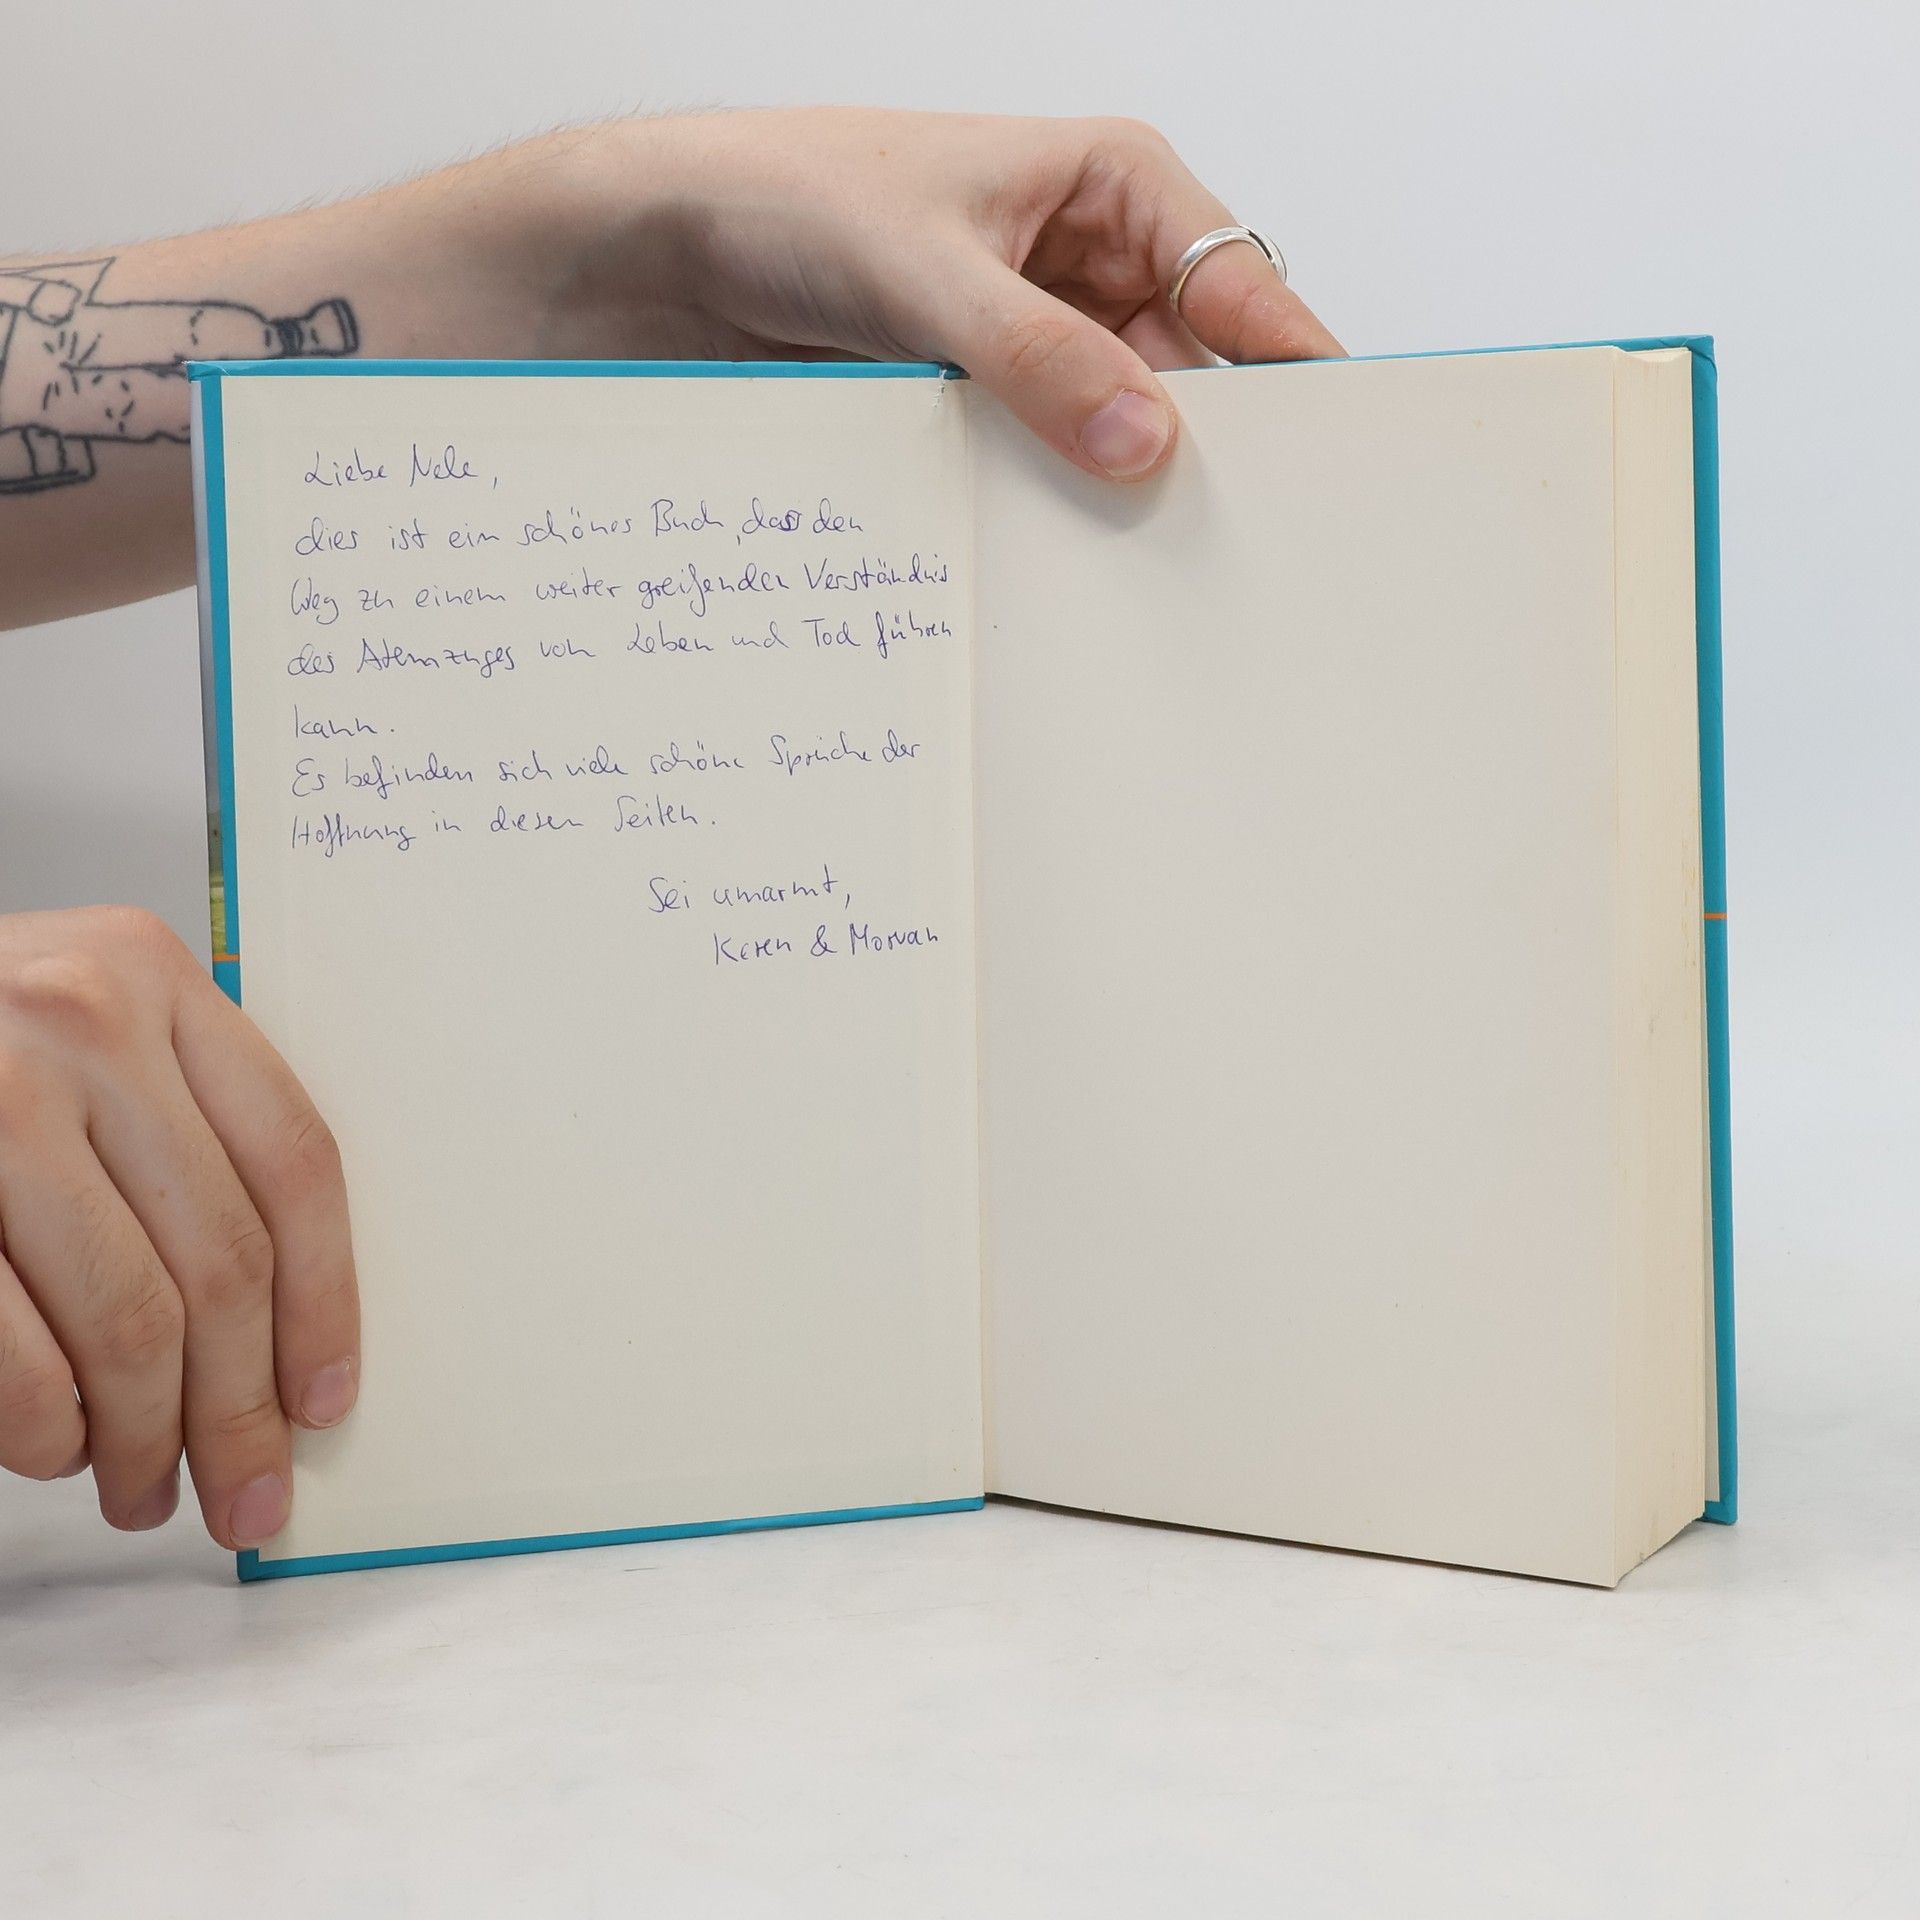 Liebe Nele,
dies ist ein schönes Buch, das den
Weg zu einem weiter greifenden Verständnis
des Atemzuges von Leben und Tod führen
kann.
Es befinden sich viele schöne Sprüche der
Hoffnung in diesen Seiten.
Sei umarmt,
Keren & Morvan